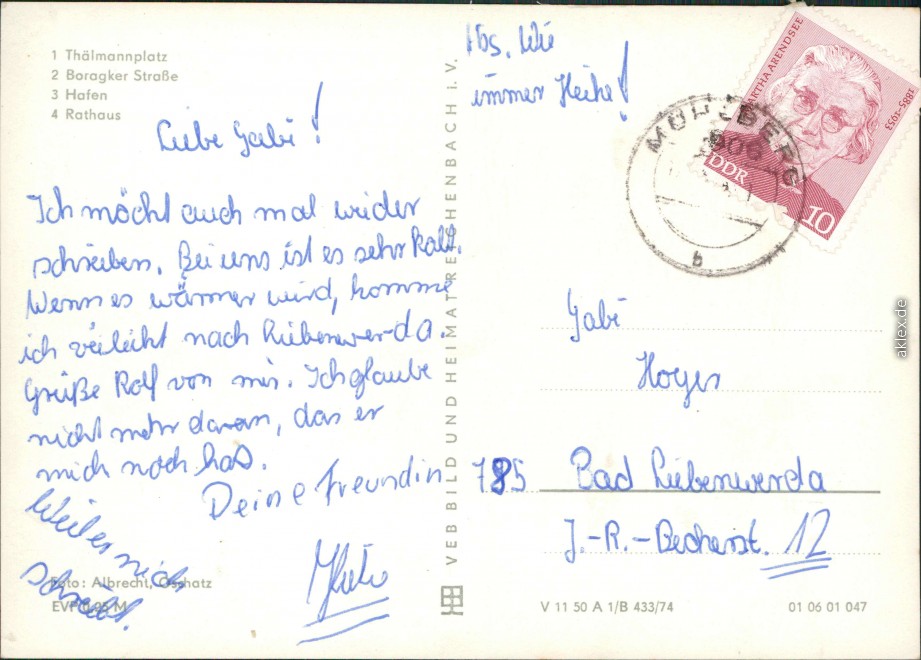 1 Thälmannplatz
2 Boragker Straße
3 Hafen
4 Rathaus
Liebe Gabi!
Ich möcht auch mal wider
schreiben. Bei uns ist es sehr kalt.
Wenn es wärmer wird, komme
ich veileiht nach Liebenwerda.
Grüße Rolf von mir. Ich glaube
nicht mehr daran, das er
mich noch had.
Weil er mich
schreibt.
Deine Freundin
Heike
Foto: Albrecht, Oschatz
EVP 0,95 M
VEB BILD UND HEIMAT REICHENBACH I. V.
Abs. Wie
immer Heike!
MÜHLBERG
b
MARTHA ARENDSEE
1885-1953
DDR
10
Gabi
Hoyer
785 Bad Liebenwerda
J.-R.-Becherst. 12
V 11 50 A 1/B 433/74
01 06 01 047
aklex.de